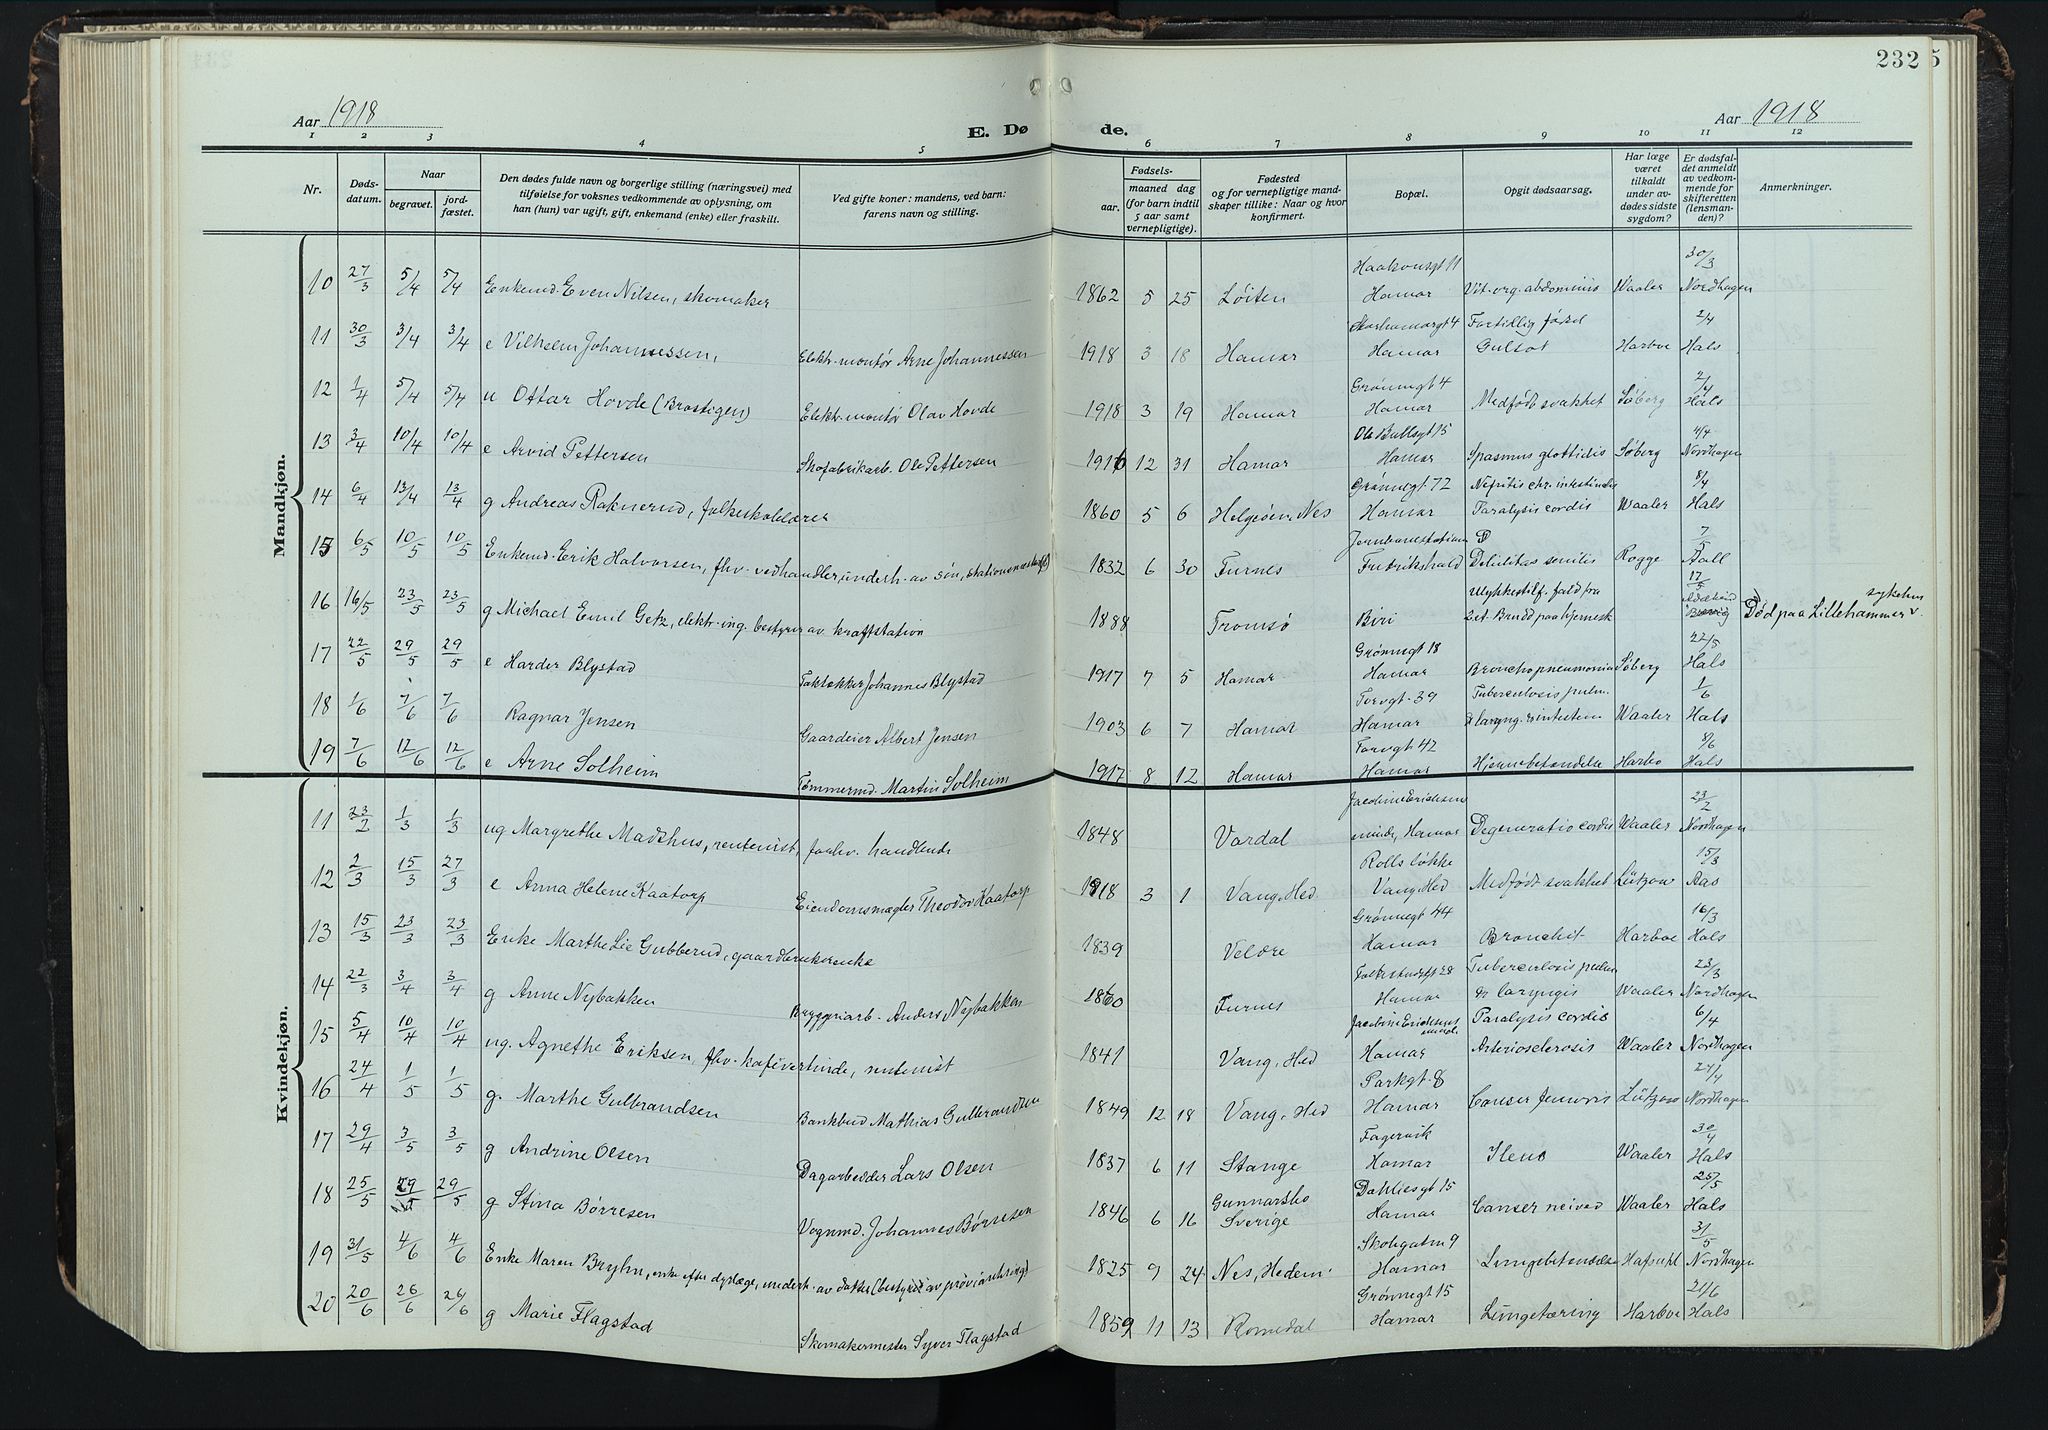 232
5
Aar 1918
E. Dø
de.
Aar 1918
1 2 3 4 5 6 7 8 9 10 11 12
Nr.
Døds-
datum.
Naar
begravet.
jord-
fæstet.
Den dødes fulde navn og borgerlige stilling (næringsvei) med
tilføielse for voksnes vedkommende av oplysning, om
han (hun) var ugift, gift, enkemand (enke) eller fraskilt.
Ved gifte koner: mandens, ved barn:
farens navn og stilling.
Fødsels-
aar.
maaned dag
(for barn indtil
5 aar samt
vernepligtige).
Fødested
og for vernepligtige mand-
skaper tillike: Naar og hvor
konfirmert.
Bopæl.
Opgit dødsaarsag.
Har læge
været
tilkaldt
under av-
dødes sidste
sygdom?
Er dødsfal-
det anmeldt
av vedkom-
mende for
skifteretten
(lensman-
den)?
Anmerkninger.
Mandkjøn.
10 27/3 5/4 5/4 Enkemd. Even Nilsen, skomaker 1862 5 25 Løiten Haakonsgt 11 Hamar Vit. org. abdominis Waaler 30/3 Nordhagen
11 30/3 3/4 3/4 e Vilhelm Johannessen, Elektr. montør Arne Johannessen 1918 3 18 Hamar Storhamargt 4 Hamar Fortidlig føsel Gulsot Harboe 2/4 Hals
12 1/4 5/4 5/4 u Ottar Hovde (Brastigen) Elektr. montør Olav Hovde 1918 3 19 Hamar Grønnegt 4 Hamar Medfødt svakhet Søberg 2/4 Hals
13 3/4 10/4 10/4 e Arvid Pettersen Skofabrikarb. Ole Pettersen 1916 12 31 Hamar Ole Bullsgt 15 Hamar Spasmus glottidis Søberg 4/4 Nordhagen
14 6/4 13/4 13/4 g Andreas Raknerud, folkeskolelærer 1860 5 6 Helgøen, Nes Grønnegt 72 Hamar Nefritis chr. intestitialis Paralysis cordis Waaler 8/4 Hals
15 6/5 10/5 10/5 Enkemd. Erik Halvorsen, fhv. vedhandler, underh. av søn, stationsmester 1832 6 30 Furnes Jernbanestationen Fredrikshald Debilitas senilis Rogge 7/5 Aall
16 16/5 23/5 23/5 g Michael Emil Getz, elektr. ing. bestyrer av kraftstation 1888 Tromsø Biri Ulykkestilf. fald fra Brudd paa hjernesk. 17/5 Død paa Lillehammer sykehus
17 22/5 29/5 29/5 e Harder Blystad Taktækker Johannes Blystad 1917 7 5 Hamar Grønnegt 18 Hamar Bronchopneumonia Søberg 22/5 Hals
18 1/6 7/6 7/6 Ragnar Jensen Gaardeier Albert Jensen 1903 6 7 Hamar Torvgt. 39 Hamar Tuberculosis pulm. & laryng. & intestin Waaler 1/6 Hals
19 7/6 12/6 12/6 e Arne Solheim Tømmermd. Martin Solheim 1917 8 12 Hamar Torvgt 42 Hamar Hjernebetændelse Harbo 8/6 Hals
Kvindekjøn.
11 23/2 1/3 1/3 ug Margrethe Madshus, rentenist, forhv. handlende 1848 Vardal Jacobine Erichsens minde, Hamar Degeneratio cordis Waaler 23/2 Nordhagen
12 2/3 15/3 27/3 e Anna Helene Kaatorp Eiendomsmægler Theodor Kaatorp 1918 3 1 Vang, Hed. Rolls løkke Vang, Hed Medfødt svakhet Lützow 15/3 Aas
13 15/3 23/3 23/3 Enke Marthe Lie Gubberud, gaardbrukerenke 1839 Veldre Grønnegt 44 Hamar Bronchit Harboe 16/3 Hals
14 22/3 3/4 3/4 g Anne Nybakken Bryggeriarb. Anders Nybakken 1860 Furnes Hamar Tuberculosis pulm & laryngis Waaler 23/3 Nordhagen
15 5/4 10/4 10/4 ug. Agnethe Eriksen, fhv. kafévertinde, rentenist 1841 Vang, Hed Jacobine Erichsens minde Hamar Paralysis cordis Arteriosclerosis Waaler 6/4 Nordhagen
16 24/4 1/5 1/5 g. Marthe Gulbrandsen Bankbud Mathias Gulbrandsen 1849 12 18 Vang, Hed Parkgt. 8 Hamar Canser femoris Lützow 27/4 Nordhagen
17 29/4 3/5 3/5 g Andrine Olsen Dagarbeider Lars Olsen 1837 6 11 Stange Fagervik Hamar Ileus Waaler 30/4 Hals
18 25/5 29/5 29/5 g Stina Børresen Vognmd. Johannes Børresen 1846 6 16 Gunnarsko Sverige Dahliesgt 15 Hamar Canser Waaler 25/5 Hals
19 31/5 4/6 4/6 Enke Maren Bryhn, enke efter dyrlæge, underh. av datter (bestyrer av proviantering) 1825 9 24 Nes, Hedem. Skolegaten 9 Hamar Lungebetændelse 31/5 Nordhagen
20 20/6 26/6 26/6 g Marie Flagstad Skomakermester Syver Flagstad 1859 11 13 Romedal Grønnegt 15 Hamar Lungetæring Harboe 21/6 Hals